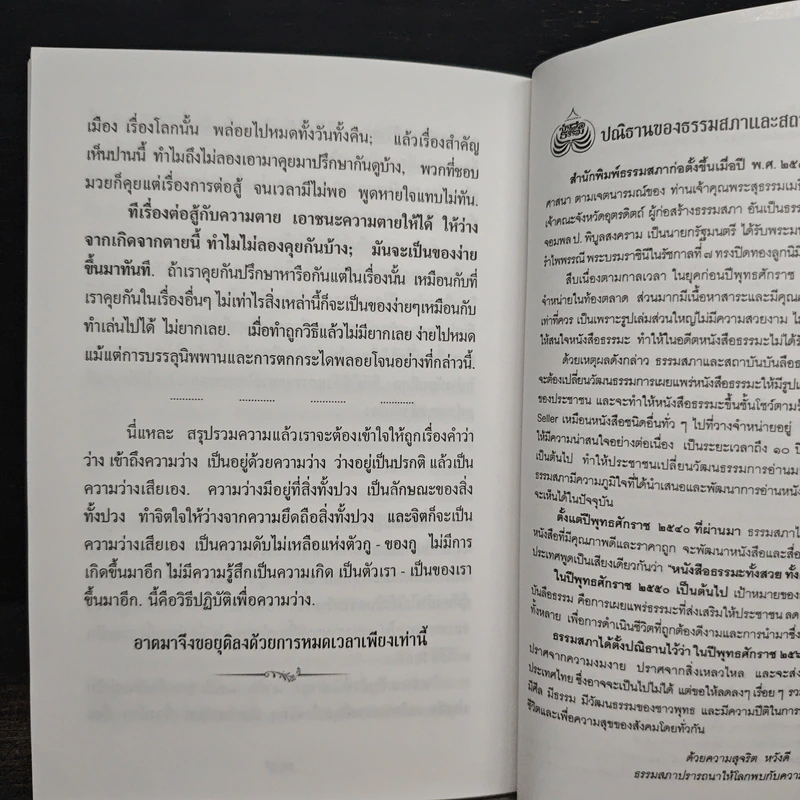 เมือง เรื่องโลกนั้น พล่อยไปหมดทั้งวันทั้งคืน; แล้วเรื่องสำคัญ
เห็นปานนี้ ทำไมถึงไม่ลองเอามาคุยมาปรึกษากันดูบ้าง, พวกที่ชอบ
มวยก็คุยแต่เรื่องการต่อสู้ จนเวลามีไม่พอ พูดหายใจแทบไม่ทัน.
ทีเรื่องต่อสู้กับความตาย เอาชนะความตายให้ได้ ให้ว่าง
จากเกิดจากตายนี้ ทำไมไม่ลองคุยกันบ้าง; มันจะเป็นของง่าย
ขึ้นมาทันที. ถ้าเราคุยกันปรึกษาหารือกันแต่ในเรื่องนั้น เหมือนกับที่
เราคุยกันในเรื่องอื่นๆ ไม่เท่าไรสิ่งเหล่านี้ก็จะเป็นของง่ายๆเหมือนกับ
ทำเล่นไปได้ ไม่ยากเลย. เมื่อทำถูกวิธีแล้วไม่มียากเลย ง่ายไปหมด
แม้แต่การบรรลุนิพพานและการตกกระไดพลอยโจนอย่างที่กล่าวนี้.
นี่แหละ สรุปรวมความแล้วเราจะต้องเข้าใจให้ถูกเรื่องคำว่า
ว่าง เข้าถึงความว่าง เป็นอยู่ด้วยความว่าง ว่างอยู่เป็นปรกติ แล้วเป็น
ความว่างเสียเอง. ความว่างมีอยู่ที่สิ่งทั้งปวง เป็นลักษณะของสิ่ง
ทั้งปวง ทำจิตใจให้ว่างจากความยึดถือสิ่งทั้งปวง และจิตก็จะเป็น
ความว่างเสียเอง เป็นความดับไม่เหลือแห่งตัวกู - ของกู ไม่มีการ
เกิดขึ้นมาอีก ไม่มีความรู้สึกเป็นความเกิด เป็นตัวเรา - เป็นของเรา
ขึ้นมาอีก. นี้คือวิธีปฏิบัติเพื่อความว่าง.
อาตมาจึงขอยุติลงด้วยการหมดเวลาเพียงเท่านี้
ปณิธานของธรรมสภาและสถา
สำนักพิมพ์ธรรมสภาก่อตั้งขึ้นเมื่อปี พ.ศ. ๒๕
ศาสนา ตามเจตนารมณ์ของ ท่านเจ้าคุณพระสุธรรมเมธี
เจ้าคณะจังหวัดอุตรดิตถ์ ผู้ก่อสร้างธรรมสภา อันเป็นธรร
จอมพล ป. พิบูลสงคราม เป็นนายกรัฐมนตรี ได้รับพระมห
รำไพพรรณี พระบรมราชินีในรัชกาลที่ ๗ ทรงปิดทองลูกนิมิ
สืบเนื่องตามกาลเวลา ในยุคก่อนปีพุทธศักราช
จำหน่ายในท้องตลาด ส่วนมากมีเนื้อหาสาระและมีคุณ
เท่าที่ควร เป็นเพราะรูปเล่มส่วนใหญ่ไม่มีความสวยงาม ไม่
ให้สนใจหนังสือธรรมะ ทำให้ในอดีตหนังสือธรรมะไม่ได้รั
ด้วยเหตุผลดังกล่าว ธรรมสภาและสถาบันบันลือธร
จะต้องเปลี่ยนวัฒนธรรมการเผยแพร่หนังสือธรรมะให้มีรูปเ
ของประชาชน และจะทำให้หนังสือธรรมะขึ้นชั้นโชว์ตามร้
Seller เหมือนหนังสือชนิดอื่นทั่ว ๆ ไปที่วางจำหน่ายอยู่
ให้มีความน่าสนใจอย่างต่อเนื่อง เป็นระยะเวลาถึง ๑๐ ปี
เป็นต้นไป ทำให้ประชาชนเปลี่ยนวัฒนธรรมการอ่านมา
ธรรมสภามีความภูมิใจที่ได้นำเสนอและพัฒนาการอ่านหนัง
จะเห็นได้ในปัจจุบัน
ตั้งแต่ปีพุทธศักราช ๒๕๔๐ ที่ผ่านมา ธรรมสภาได้
หนังสือที่มีคุณภาพดีและราคาถูก จะพัฒนาหนังสือและสื่อ
ประเทศพูดเป็นเสียงเดียวกันว่า "หนังสือธรรมะทั้งสวย ทั้ง
ในปีพุทธศักราช ๒๕๕๐ เป็นต้นไป เป้าหมายของ
บันลือธรรม คือการเผยแพร่ธรรมะที่ส่งเสริมให้ประชาชน ลด
ทั้งหลาย เพื่อการดำเนินชีวิตที่ถูกต้องดีงามและการนำมาซึ่ง
ธรรมสภาได้ตั้งปณิธานไว้ว่า ในปีพุทธศักราช ๒๕
ปราศจากความงมงาย ปราศจากสิ่งเหลวไหล และจะส่ง
ประเทศไทย ซึ่งอาจจะเป็นไปไม่ได้ แต่ขอให้ลดลงๆ เรื่อย ๆ รวม
มีศีล มีธรรม มีวัฒนธรรมของชาวพุทธ และมีความปีติในการ
ชีวิตและเพื่อความสุขของสังคมโดยทั่วกัน
ด้วยความสุจริต หวังดี
ธรรมสภาปรารถนาให้โลกพบกับความ